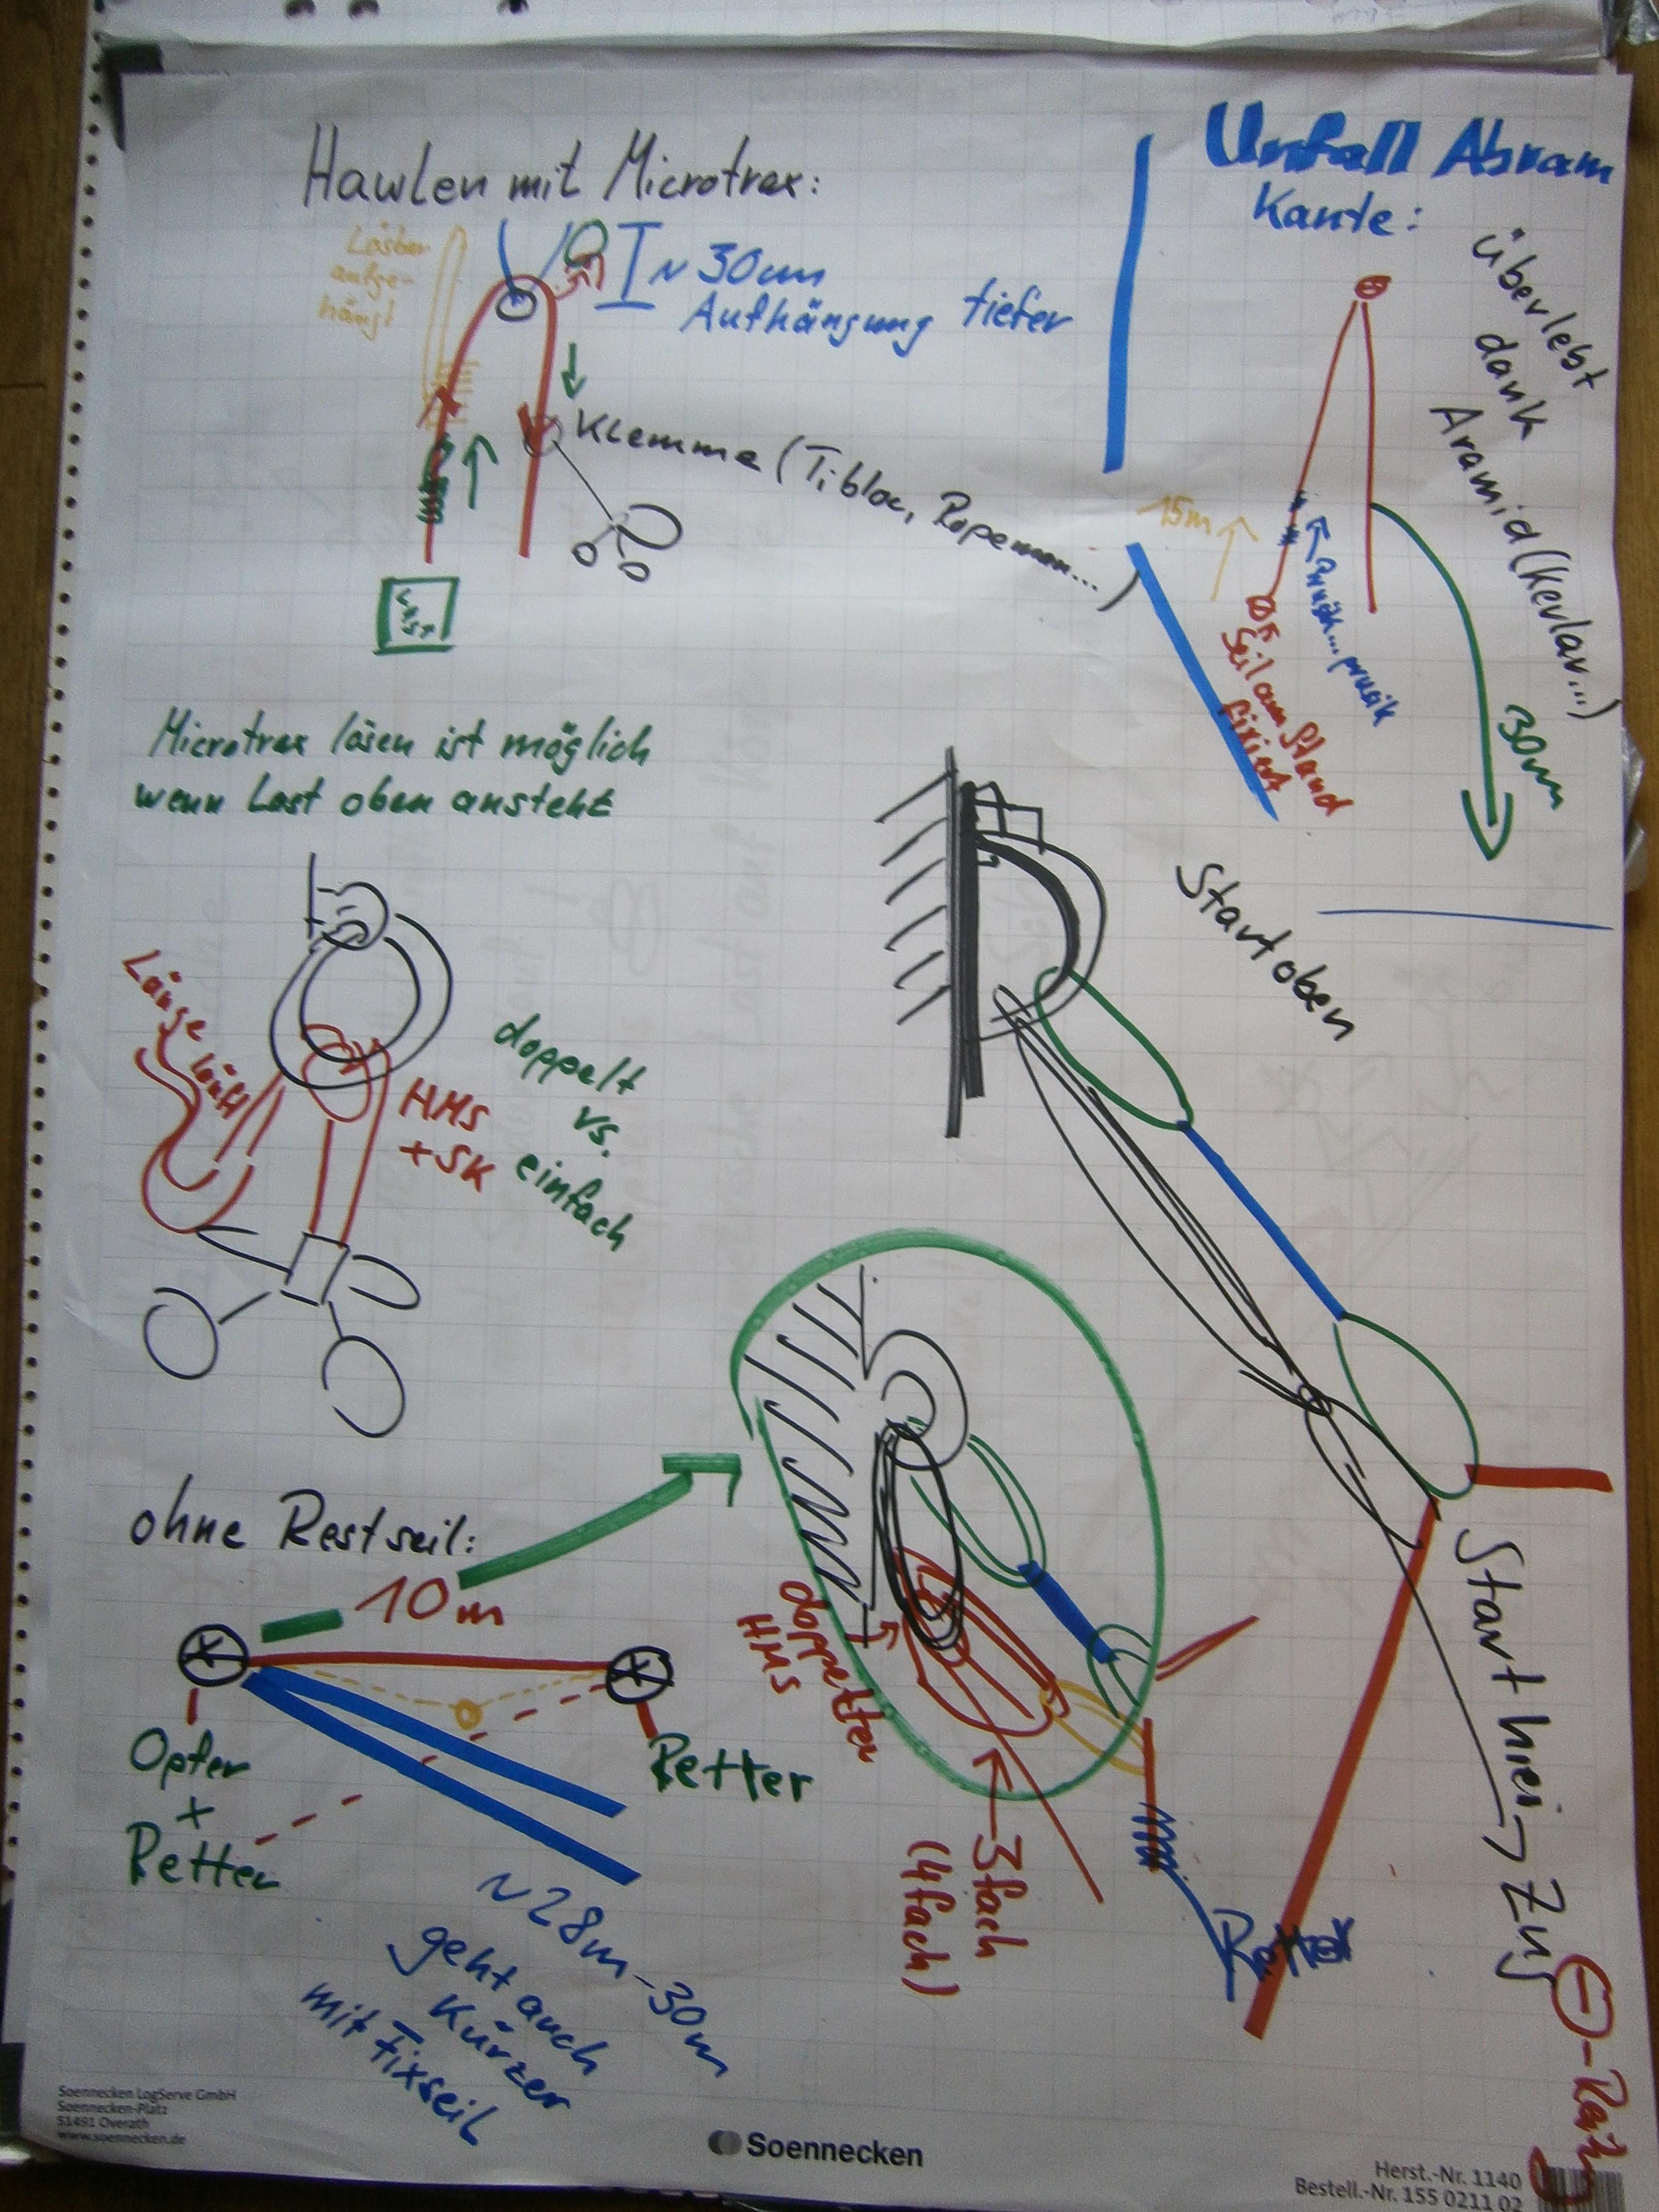 Hawlen mit Microtrax:
Lösbar
aufge-
hängt
~ 30cm
Aufhängung tiefer
Klemme (Tibloc, Ropeman...)
Unfall Abram
Kante:
überlebt
dank
Aramid (Kevlar...)
15m
prusik
Seil am Stand
fixiert
30m
Microtrax lösen ist möglich
wenn Last oben ansteht
Start oben
Länge
läuft
HMS
+ SK
doppelt
vs.
einfach
ohne Restseil:
10m
Opfer
+
Retter
Retter
~28m-30m
geht auch
Kürzer
mit Fixseil
doppelter
HMS
3fach
(4fach)
Retter
Start hier → Zug
Soennecken LogServe GmbH
Soennecken-Platz
51491 Overath
www.soennecken.de
Soennecken
Herst.-Nr. 1140
Bestell.-Nr. 155 0211 02